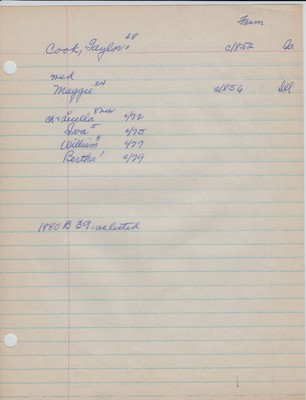 Farm
Cook, Taylor 28 c/852
med
Maggie 24 c/854 Ill
ch - Luella 8 c/72
Iva 5 c/75
William 3 c/77
Bertha 1 c/79
1880 B 39 - as listed